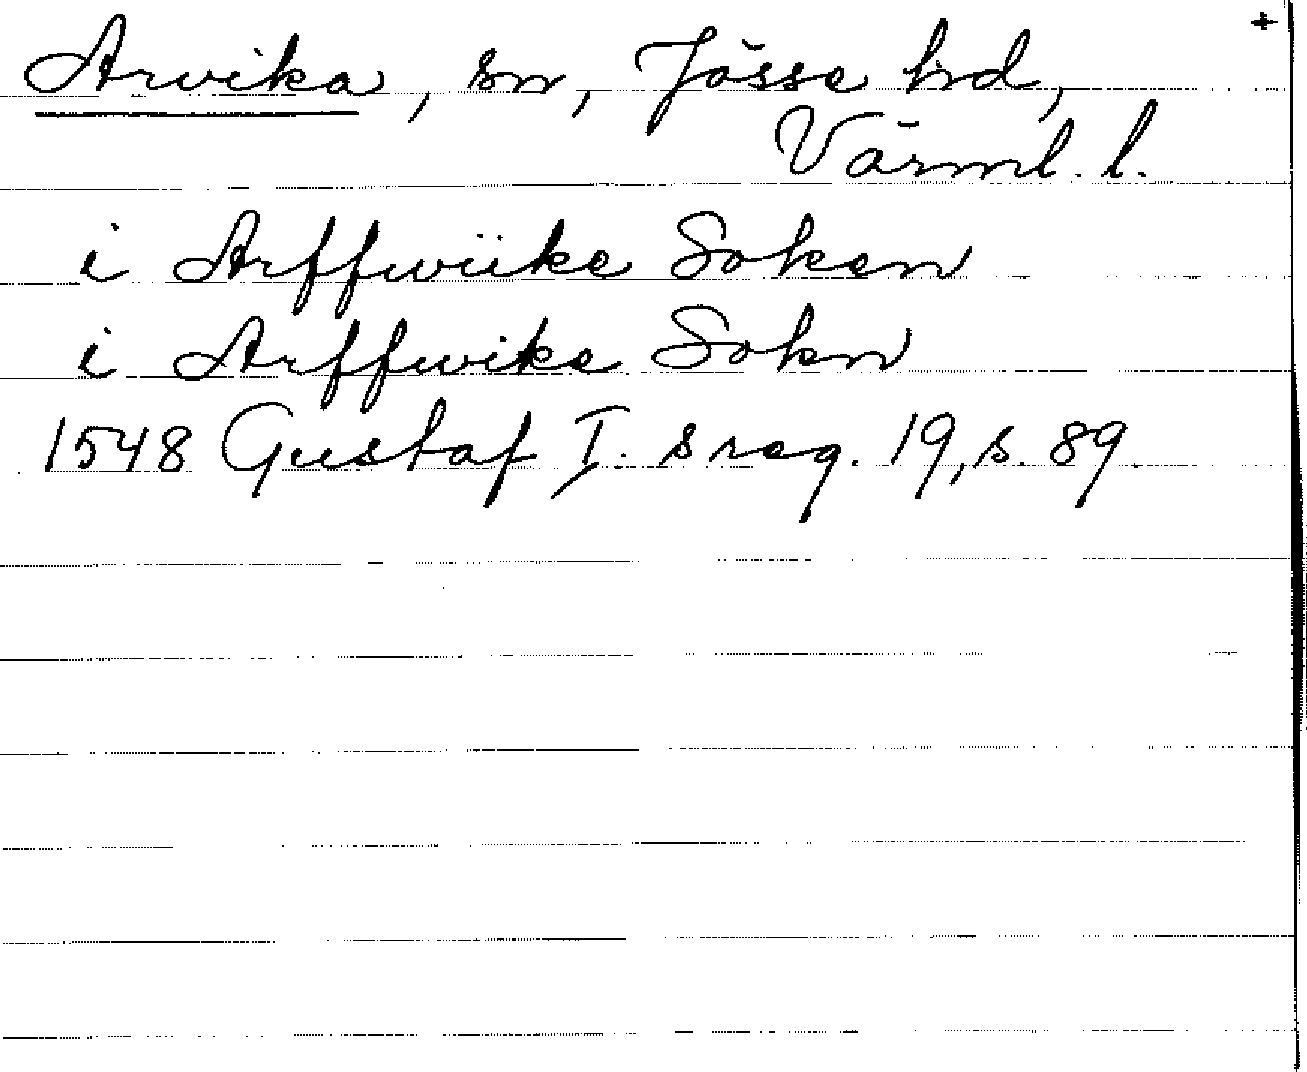 +
Arvika, sn, Jösse hd,
Värml. l.
i Arffwiike Soken
i Arffwike Sokn
1548 Gustaf I. s reg. 19, s. 89.